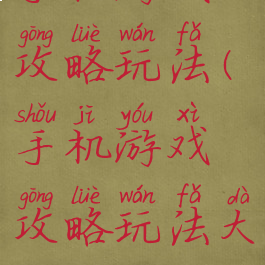 gōng lüè wán fǎ
攻略玩法(
shǒu jī yóu xì
手机游戏
gōng lüè wán fǎ dà
攻略玩法大